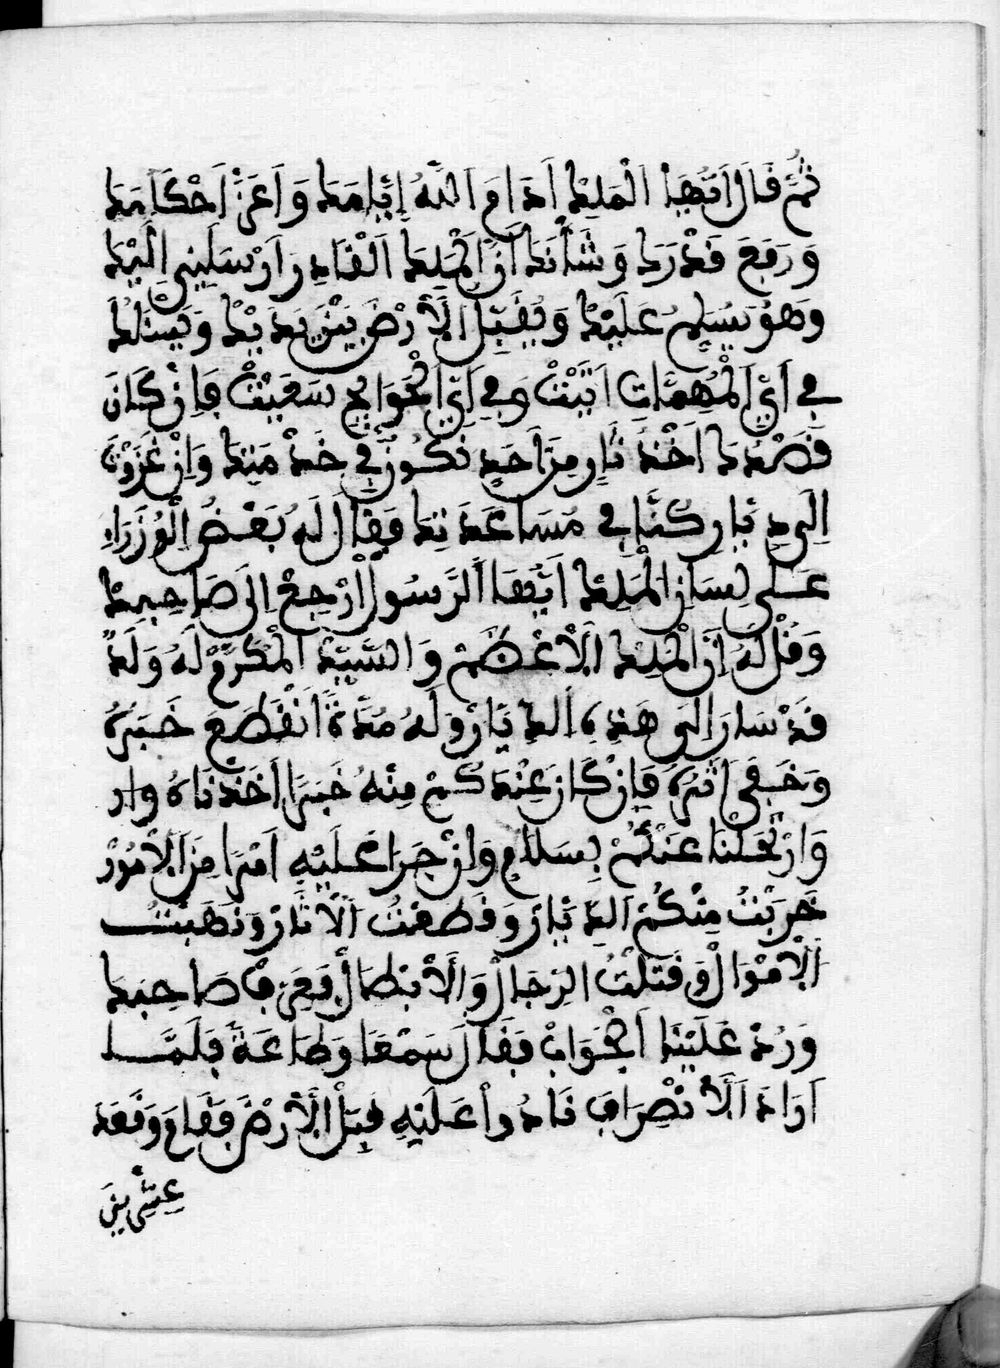 ثُمَّ قَالَ أَيُّهَا الْمَلِكُ أَدَامَ اللَّهُ إِيَّامَكَ وَأَعَزَّ أَحْكَامَكَ
وَرَفَعَ قَدْرَكَ وَشَأْنَكَ أَنَّ الْمَلِكَ الْقَادِرَ أَرْسَلَنِي إِلَيْكَ
وَهُوَ يُسَلِّمُ عَلَيْكَ وَيُقَبِّلُ الْأَرْضَ بَيْنَ يَدَيْكَ وَيَسْئَلُكَ
فِي أَيِّ الْمُهِمَّاتِ أَتَيْتَ وَفِي أَيِّ الْحَوَائِجِ سَعَيْتَ فَإِنْ كَانَ
قَصْدُكَ أَخْذَ ثَارٍ مِنْ أَحَدٍ نَكُونُ فِي خَدْمَتِكَ وَإِنْ غَزَوْتَ
إِلَى دِيَارٍ كُنَّا فِي مَسَاعَدَتِكَ فَقَالَ لَهُ بَعْضُ الْوُزَرَاءِ
عَلَى لِسَانِ الْمَلِكِ أَيُّهَا الرَّسُولُ ارْجِعْ إِلَى صَاحِبِكَ
وَقُلْ لَهُ إِنَّ الْمَلِكَ الْأَعْظَمْ وَالسَّيِّدْ الْمُكَرَّمْ لَهُ وَلَدٌ
قَدْ سَارَ إِلَى هَذِهِ الدِّيَارْ وَلَهُ مُدَّةً انْقَطَعَ خَبَرُهُ
وَخَفَى أَثَرُهُ فَإِنْ كَانَ عِنْدَكُمْ مِنْهُ خَبَرًا أَخَذْنَاهُ وار
وَارْتَحَلْنَا عَنْكُمْ بِسَلَامٍ وَإِنْ جَرَا عَلَيْهِ أَمْرًا مِنَ الْأُمُورْ
خَرَبْتُ مِنْكُمْ الدِّيَارْ وَقَطَعْتُ الْآثَارْ وَنَهَبْتُ
الْأَمْوَالْ وَقَتَلْتُ الرِّجَالْ وَالْأَبْطَالْ فَعَرِّفْ صَاحِبَكَ
وَرُدْ عَلَيْنَا الْجَوَابْ فَقَالَ سَمْعًا وَطَاعَةً فَلَمَّا
أَرَادَ الْأَنْصِرَافِ نَادُوا عَلَيْهِ قَبِّلْ الْأَرْضَ فَقَامَ وَقَعَدَ
عِشْرِينَ